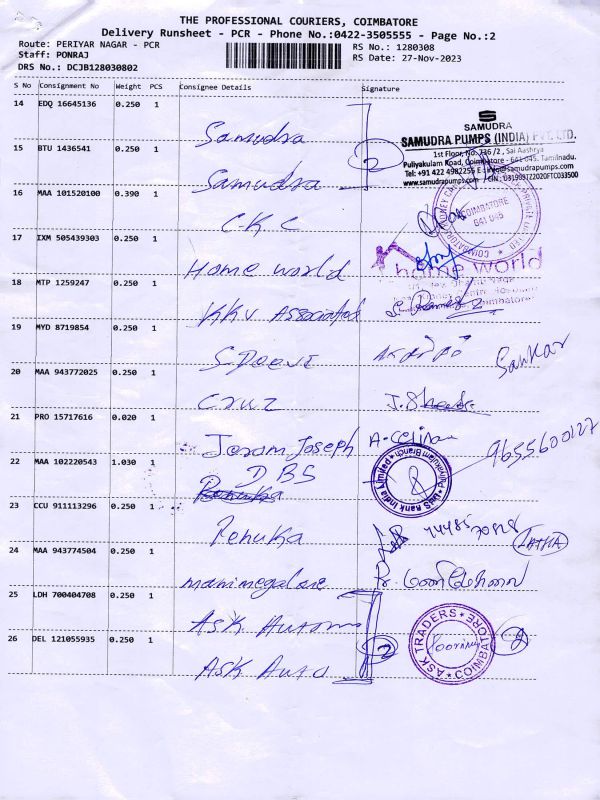 THE PROFESSIONAL COURIERS, COIMBATORE
Delivery Runsheet - PCR - Phone No.:0422-3505555 - Page No.:2
Route: PERIYAR NAGAR - PCR
RS No.: 1280308
Staff: PONRAJ
RS Date: 27-Nov-2023
DRS No.: DCJB128030802
S No Consignment No Weight PCS Consignee Details Signature
14 EDQ 16645136 0.250 1 Samudra
SAMUDRA
SAMUDRA PUMPS (INDIA) PVT. LTD.
1st Floor, No. 736/2, Sai Aashrya
Puliyakulam Road, Coimbatore - 641 045. Tamilnadu.
Tel: +91 422 4982255 E: info@samudrapumps.com
www.samudrapumps.com
15 BTU 1436541 0.250 1 Samudra 2
16 MAA 101520100 0.390 1 C.K.C
COIMBATORE
641 045
17 IXM 505439303 0.250 1 Home world
home world
18 MTP 1259247 0.250 1 KKV Associates
19 MYD 8719854 0.250 1
Sankar
20 MAA 943772025 0.250 1 Cruz
21 PRO 15717616 0.020 1 Joseph
9655600127
22 MAA 102220543 1.030 1 DBS
DBS Bank India Limited Puliyakulam Branch
23 CCU 911113296 0.250 1 Renuka
24 MAA 943774504 0.250 1
25 LDH 700404708 0.250 1 ASK
26 DEL 121055935 0.250 1 ASK Auto 2
ASK TRADERS COIMBATORE
2